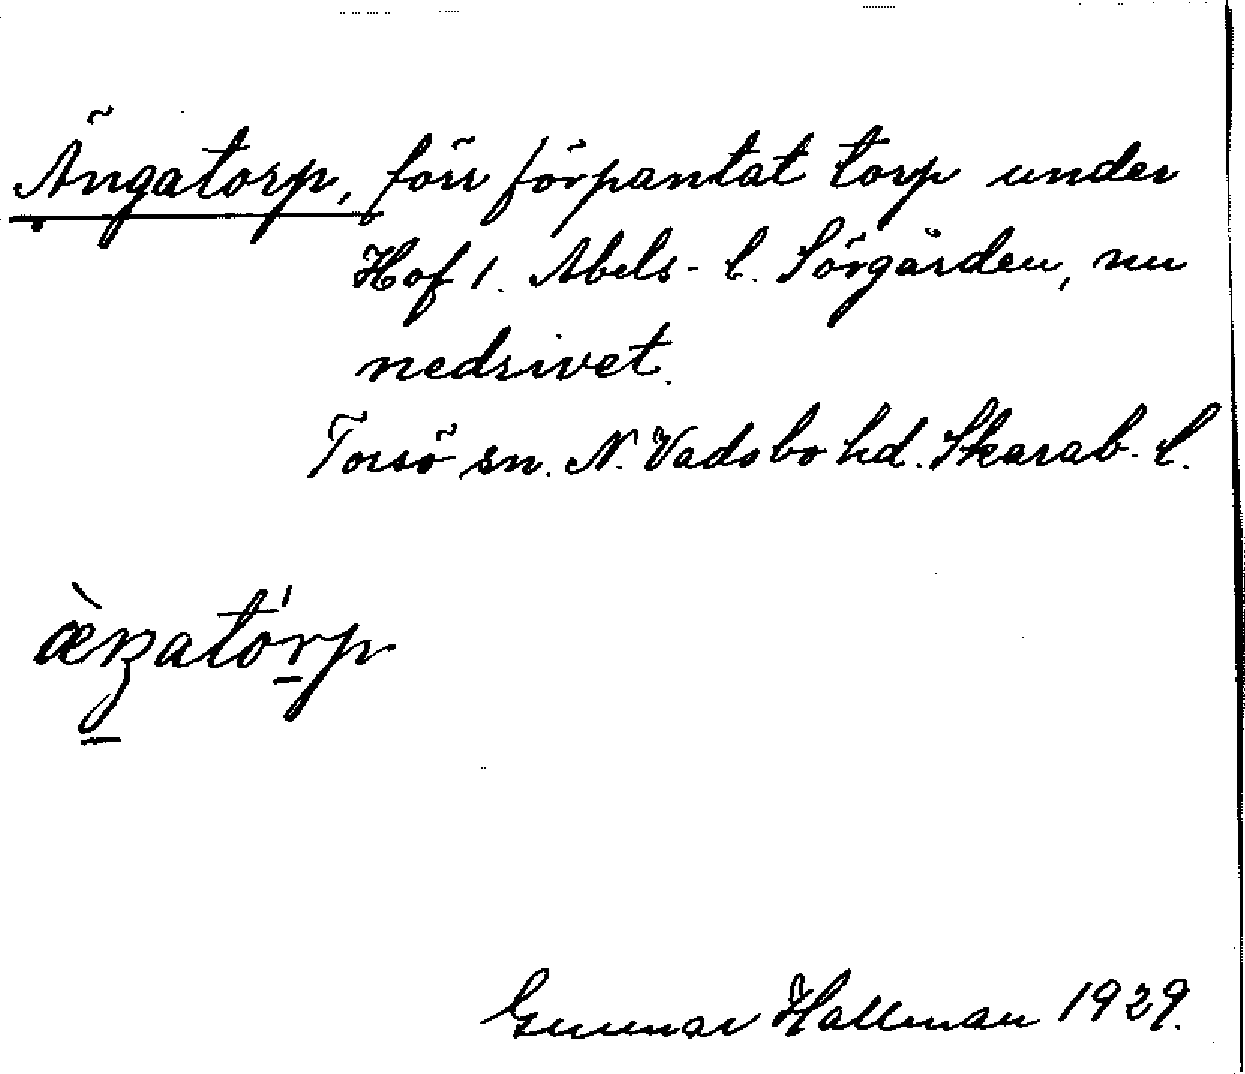 Ängatorp, förr förpantat torp under
Hof 1. Abels- l. Sörgården, nu
nedrivet.
Torsö sn. N. Vadsbo hd. Skarab. l.
æ̀ŋatórp
Gunnar Hallman 1929.